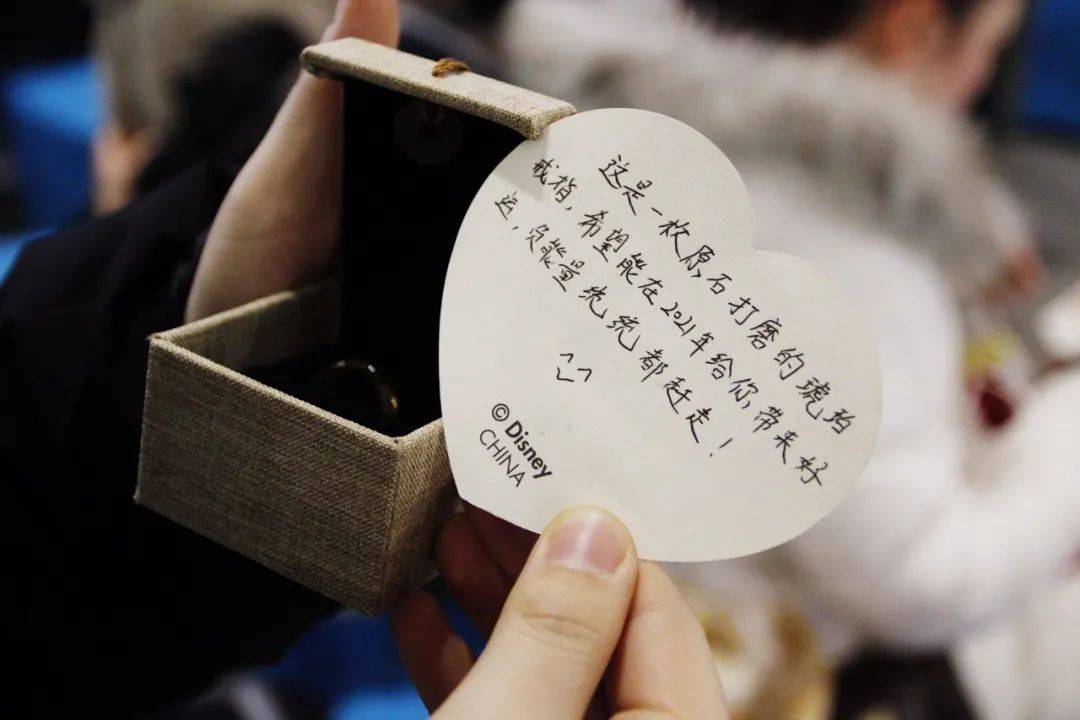 这是一枚原石打磨的琥珀
戒指,希望能在2021年给你带来好
运,负能量统统都赶走!
^_^
© Disney
CHINA